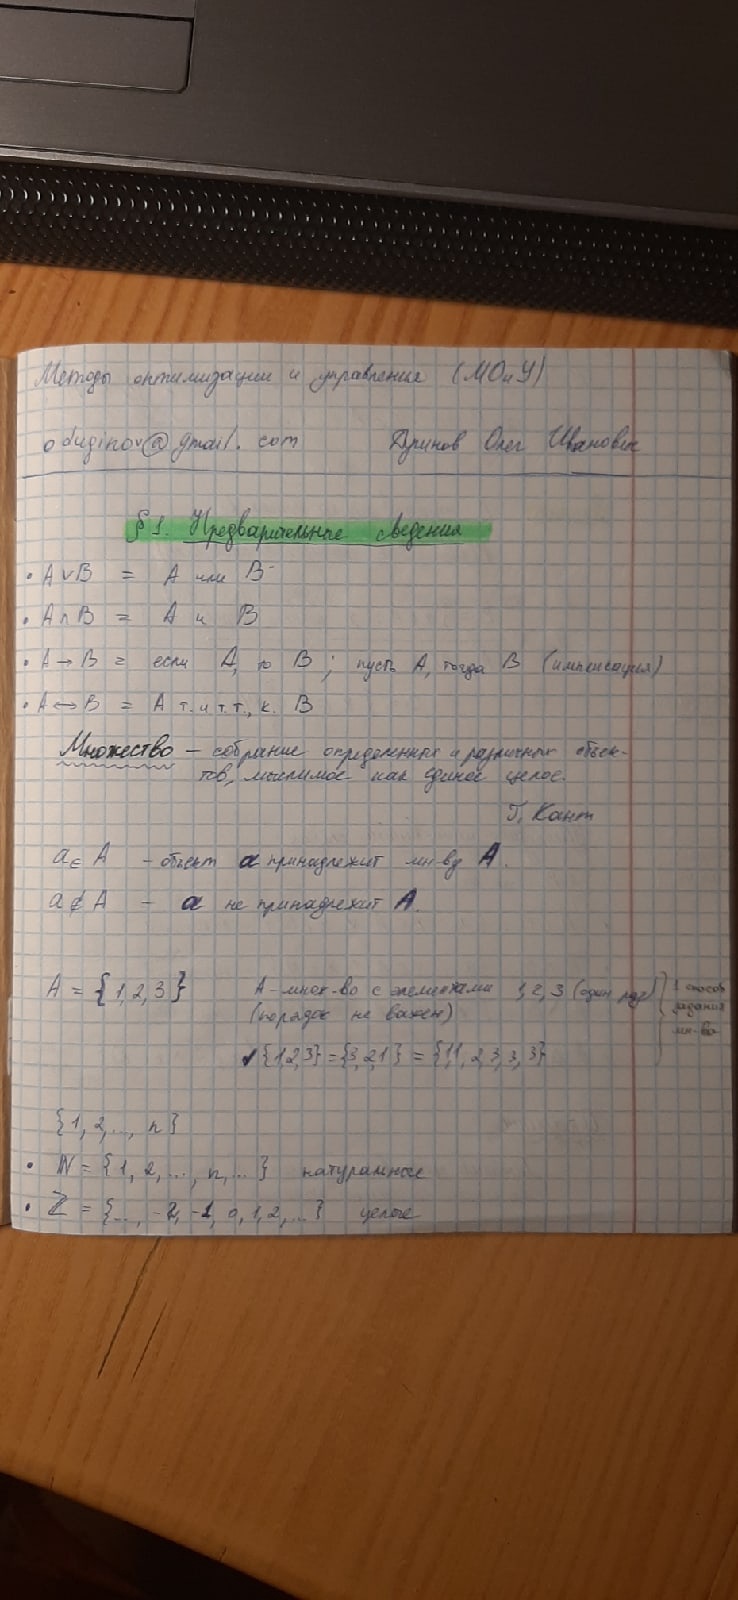 Методы оптимизации и управления (МОиУ)
oduginov@gmail.com Олег Иванович
§ 1. Предварительные сведения
• A ∨ B = A или B
• A ∧ B = A и B
• A → B = если A, то B ; пусть A, тогда B (импликация)
• A ↔ B = A т. и т.т., к. B
Множество – собрание определенных и различных объек-
тов, мыслимое как единое целое.
Г. Кант
a ∈ A – объект a принадлежит мн-ву A.
a ∉ A – a не принадлежит A.
A = {1, 2, 3} A – множ-во с элементами 1, 2, 3 (один раз) 1 способ
(порядок не важен) задания
мн-ва
✓{1,2,3} = {3,2,1} = {1,1, 2, 3, 3, 3}
{1, 2, ..., n}
• ℕ = {1, 2, ..., n, ...} натуральные
• ℤ = {..., -2, -1, 0, 1, 2, ...} целые